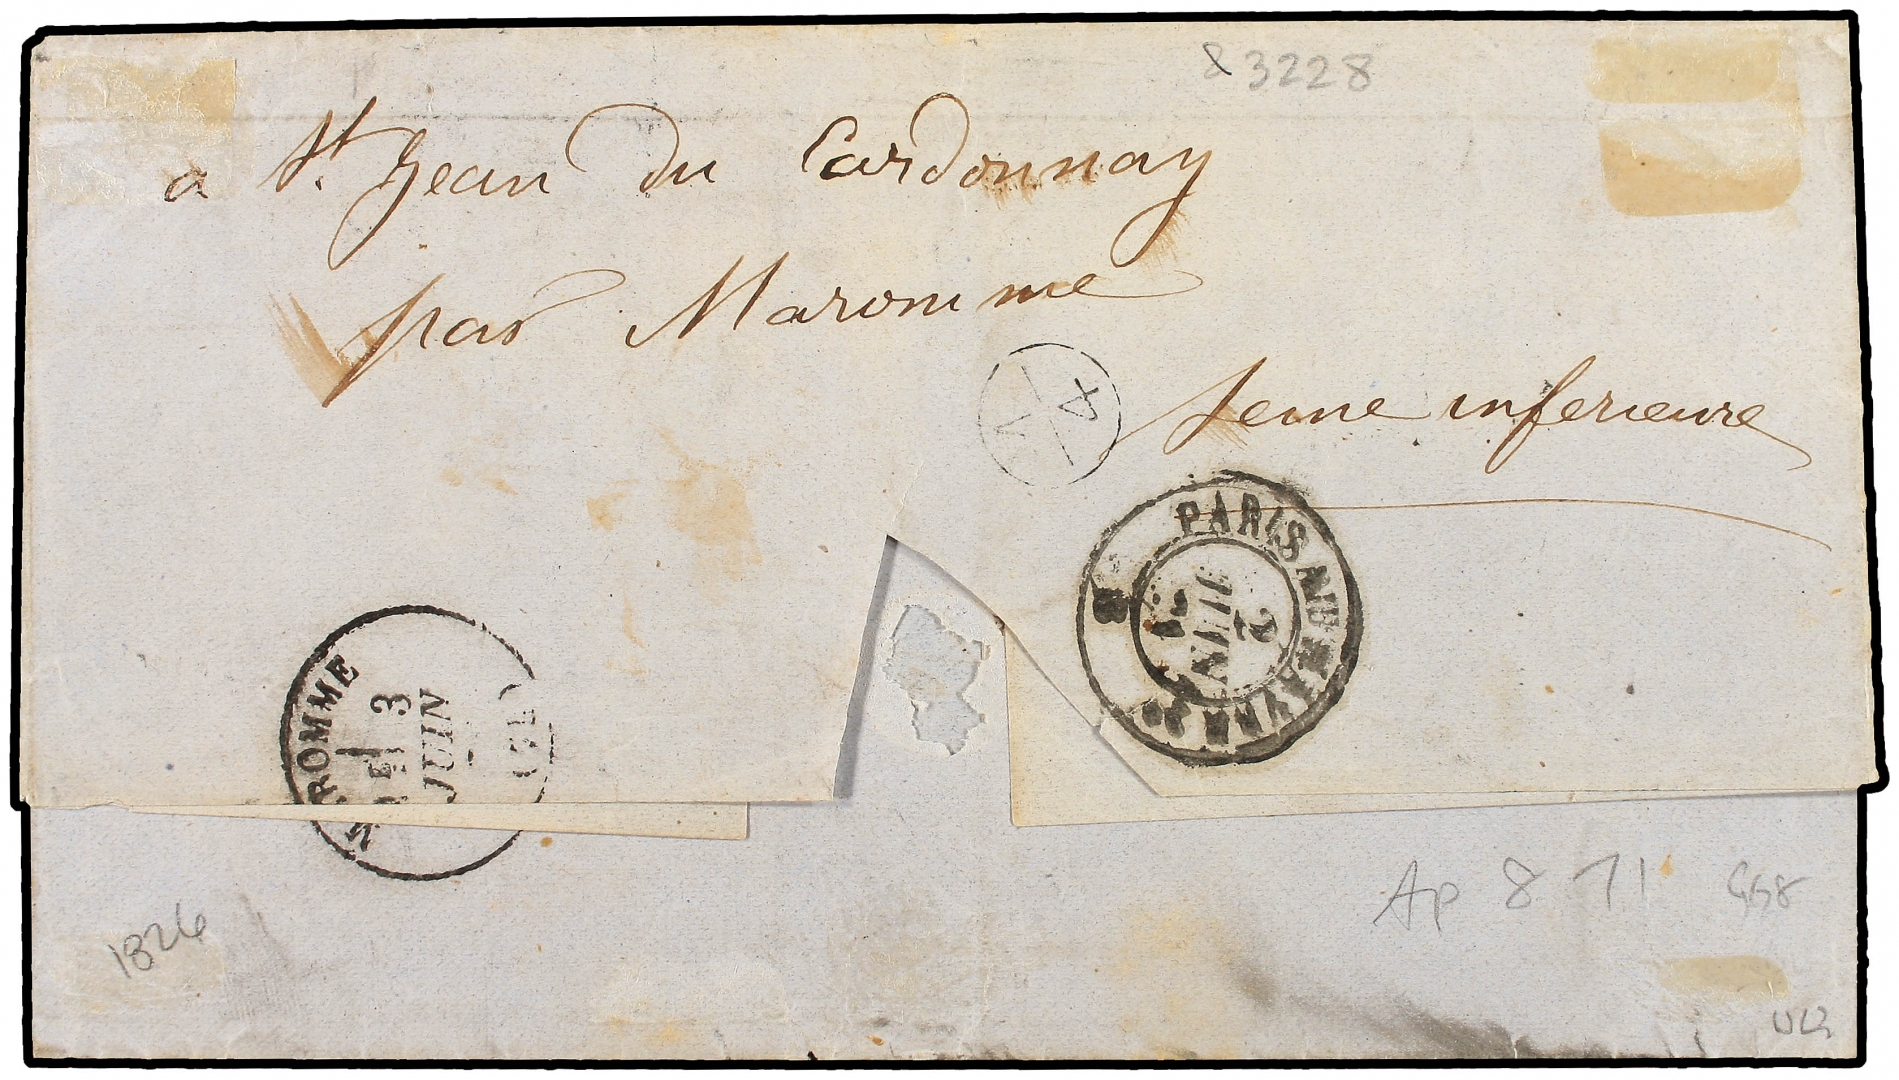 83228
a St. Jean du Cardonnay
par Maromme
Seine inferieure
4
PARIS AU HAVRE 2°
2
JUIN
71
B
MAROMME
3
JUIN
Ap 8 71
1826